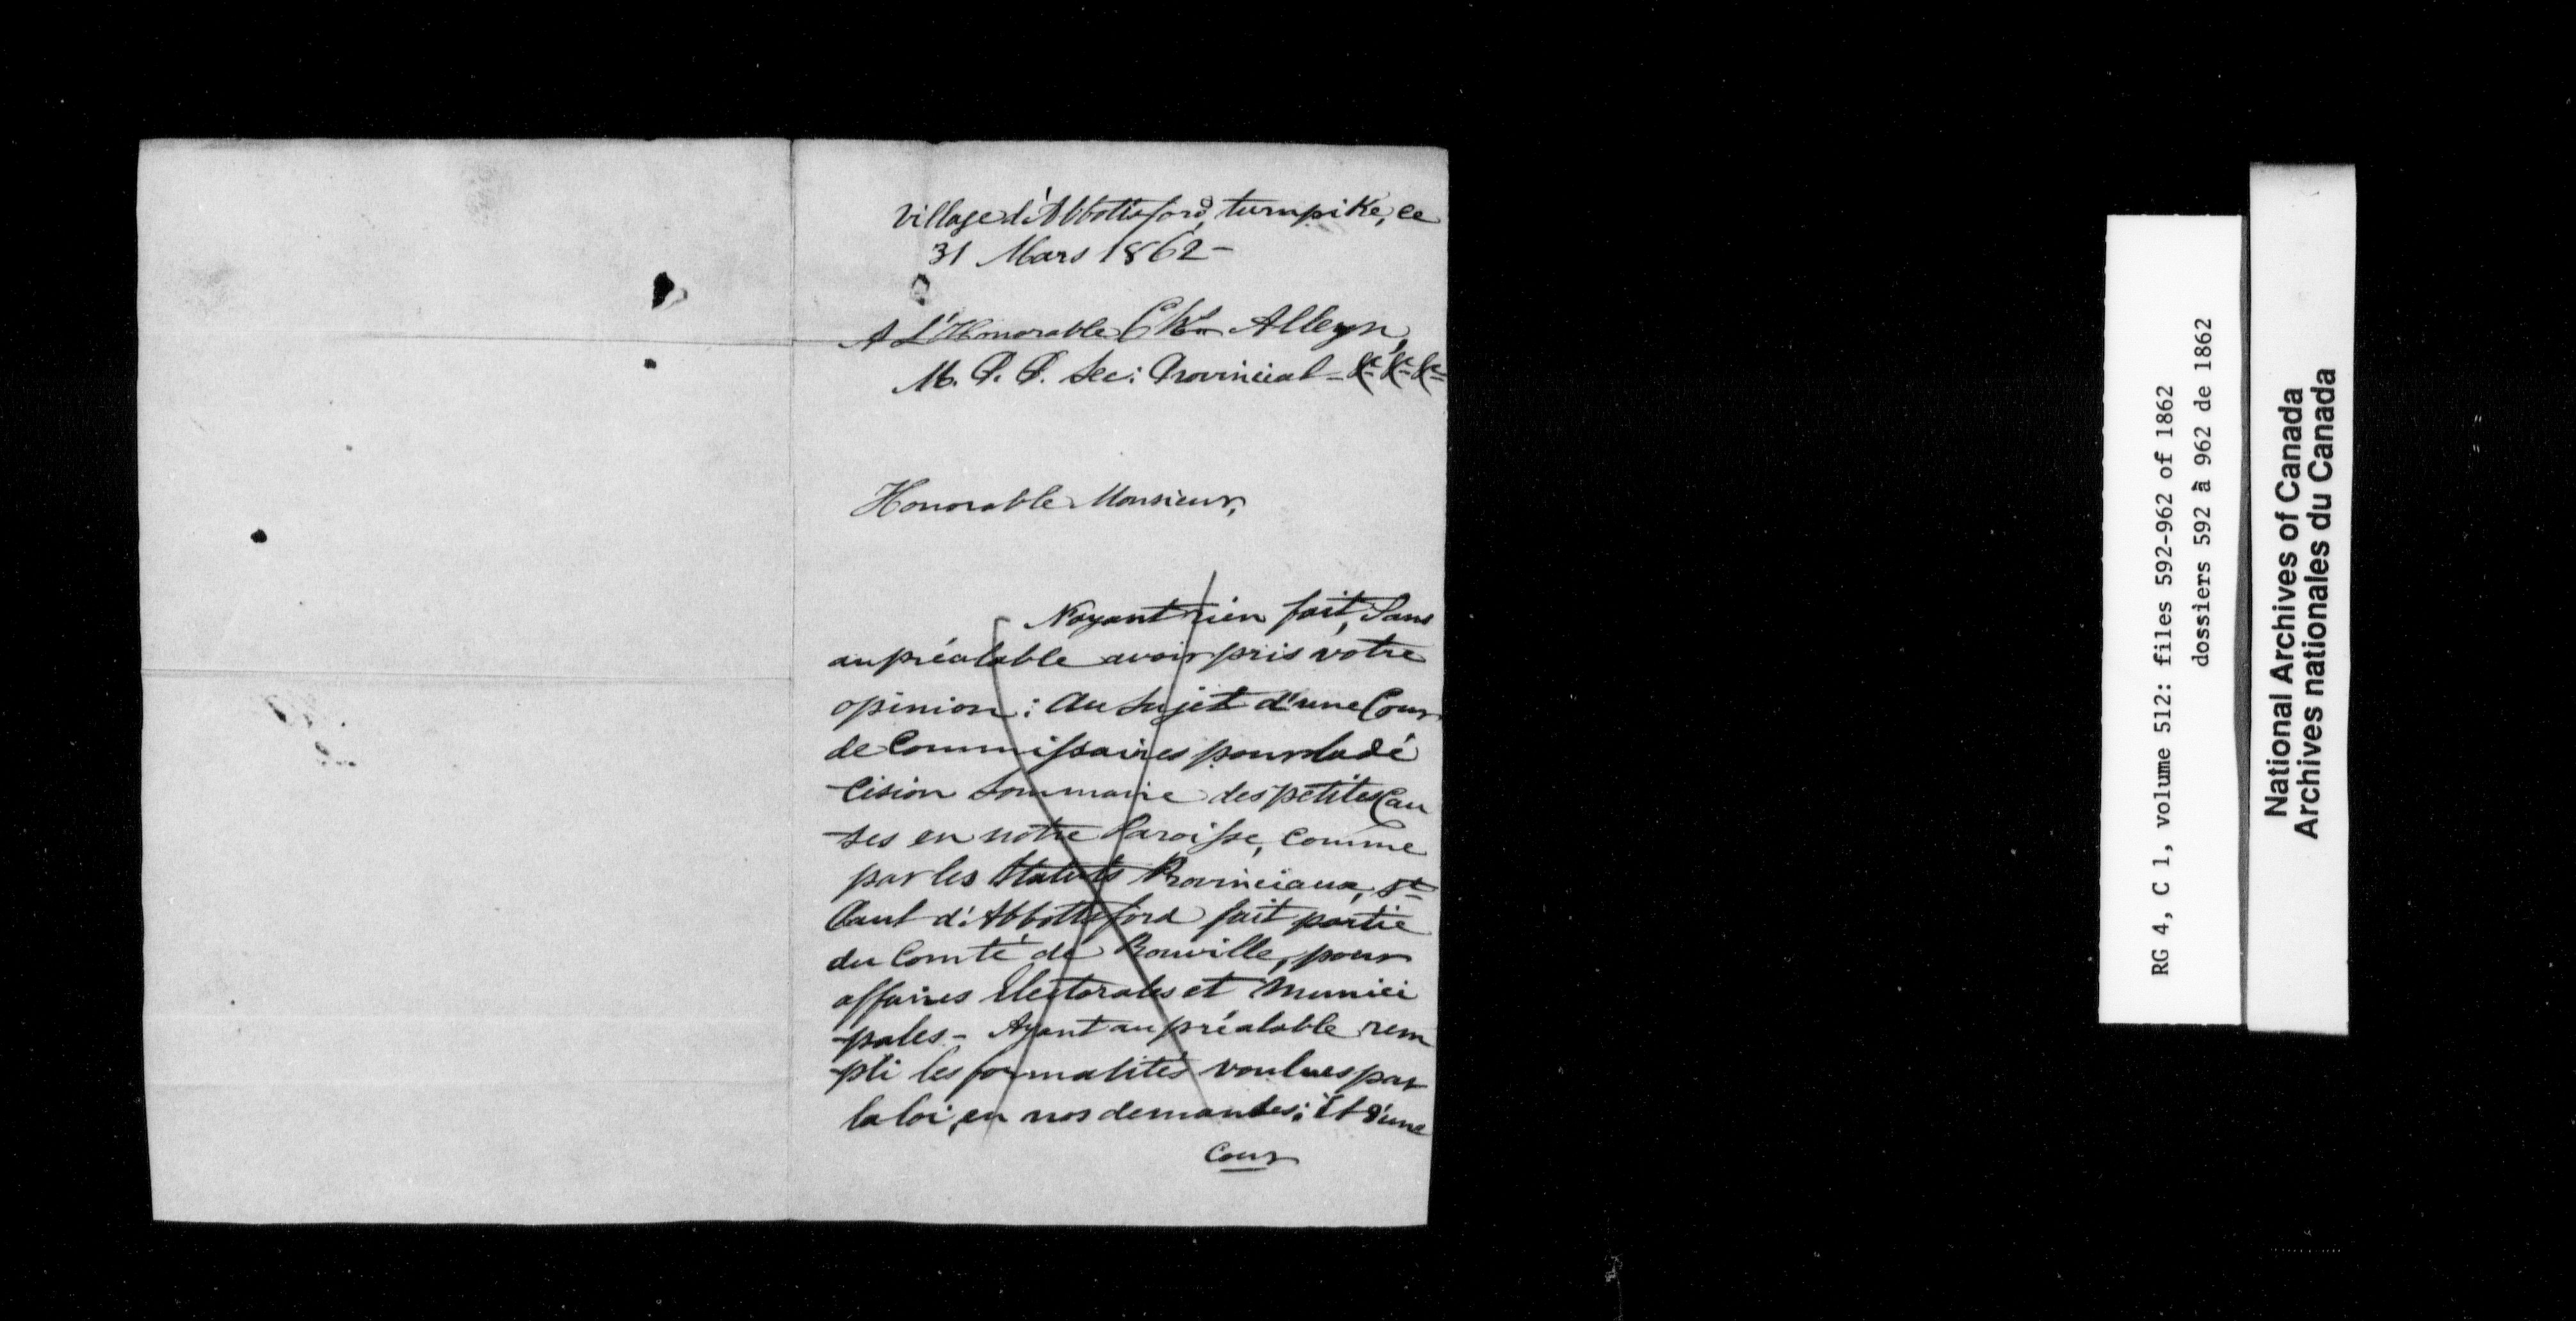 Village d'Abbottsford, turnpike, ce
31 Mars 1862 -
A L'Honorable Chs Alleyn,
M. P. P. Sec: Provincial - &c &c &c
Honorable Monsieur,
N'ayant rien fait, Sans
au préalable avoir pris votre
opinion : Au Sujet d'une Cour
de Commissaires pour la dé
cision Sommaire des petites Cau
ses en notre Paroisse, Comme
par les Statuts Provinciaux, St
Paul d'Abbottsford fait partie
du Comté de Rouville, pour
affaires Electorales et Munici
pales - Ayant au préalable rem
pli les formalités voulues par
la loi, en nos demandes: Et d'une
Cour
RG 4, C 1, volume 512: files 592-962 of 1862
dossiers 592 à 962 de 1862
National Archives of Canada
Archives nationales du Canada